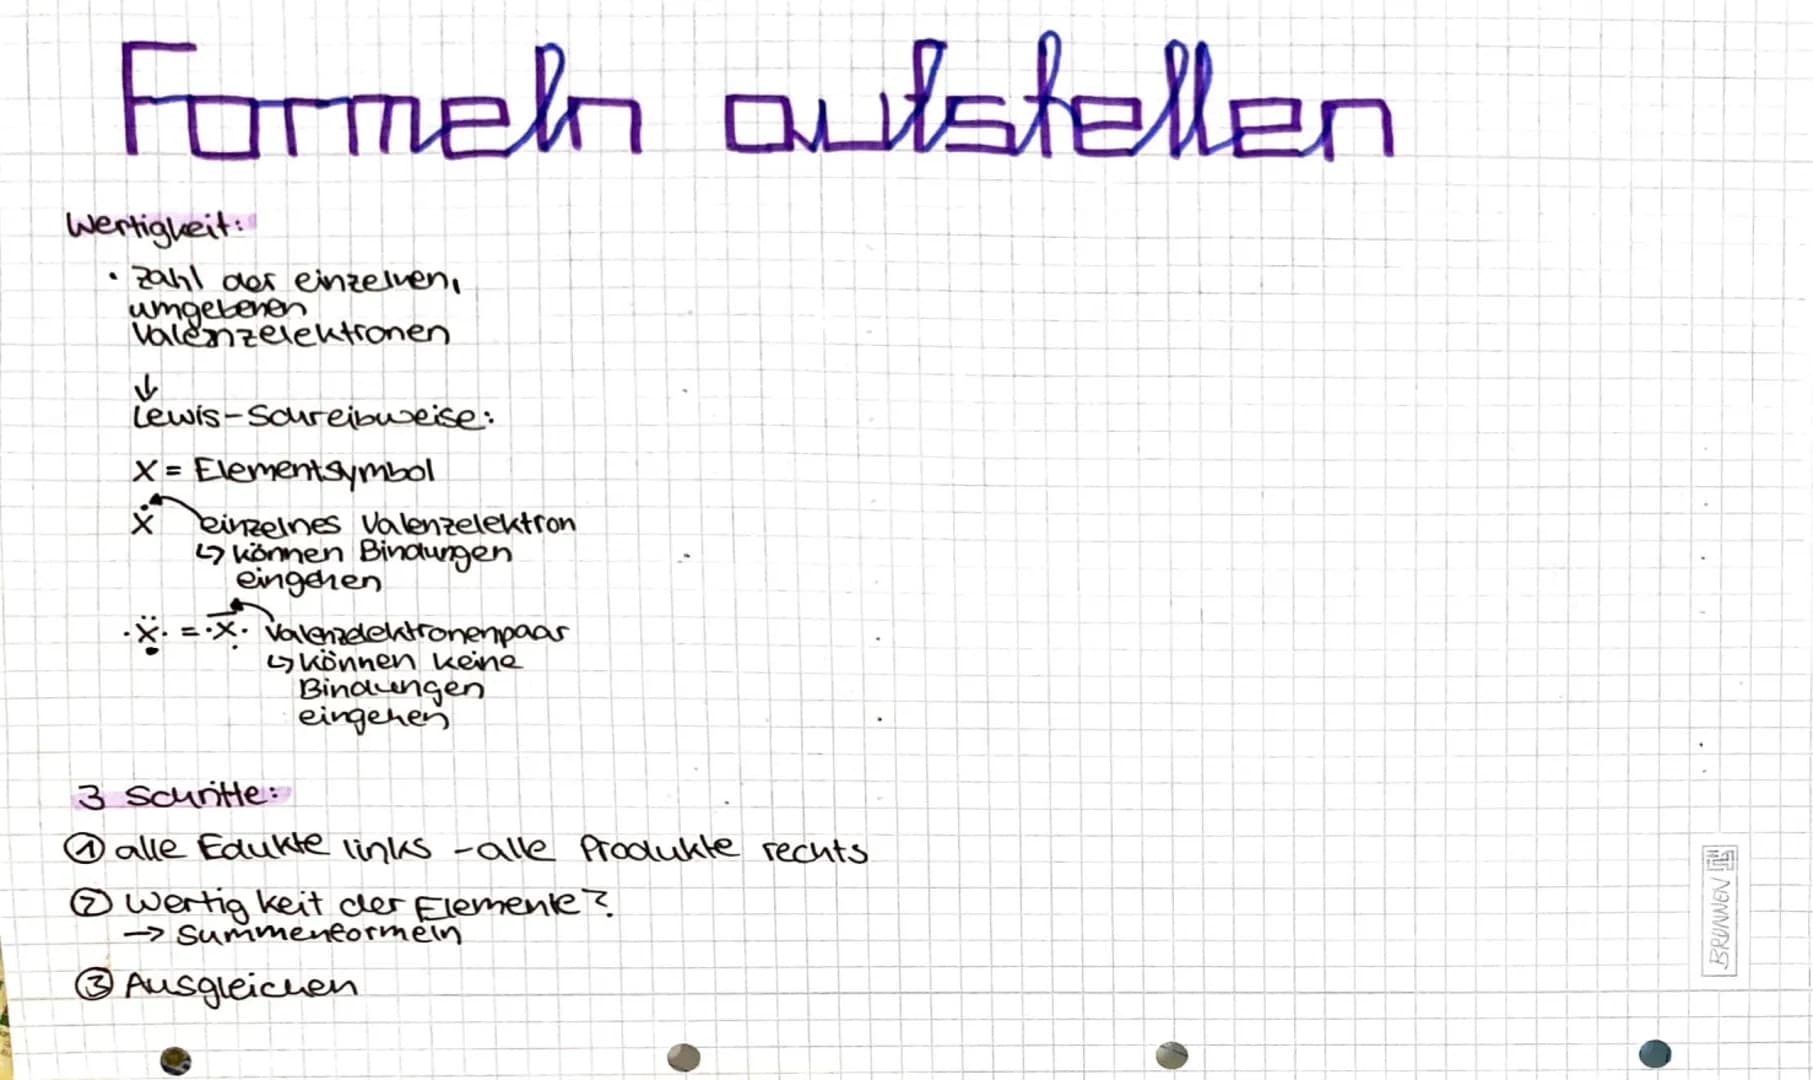 Formeln aufstellen
Wertigkeit:
• Zahl der einzelnen,
umgebenen
Valenzelektronen
↓
Lewis-Schreibweise:
X = Elementsymbol
Ẋ einzelnes Valenzelektron
↳ können Bindungen
eingehen
·Ẍ· = ·X̅· Valenzelektronenpaar
↳ können keine
Bindungen
eingehen
3 Schritte:
① alle Edukte links - alle Produkte rechts
② Wertigkeit der Elemente?
→ Summenformeln
③ Ausgleichen
BRUNNEN